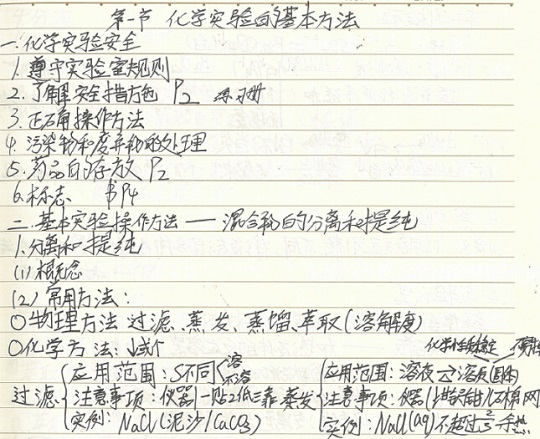 第一节 化学实验的基本方法
一.化学实验安全
1.遵守实验室规则
2.了解安全措施 P2 练习册
3.正确操作方法
4.污染物和废弃物的处理
5.药品的存放 P2
6.标志 书P4
二.基本实验操作方法——混合物的分离和提纯
1.分离和提纯
(1)概念
(2)常用方法:
○物理方法 过滤、蒸发、蒸馏、萃取(溶解度)
○化学方法:
化学性质稳定
过滤 应用范围:S不同 溶 不溶
注意事项:仪器 一贴2低三靠
实例:NaCl(泥沙/CaCO3)
蒸发 应用范围:溶液 溶质
注意事项:仪器
实例:NaCl(aq) 不超过 余热